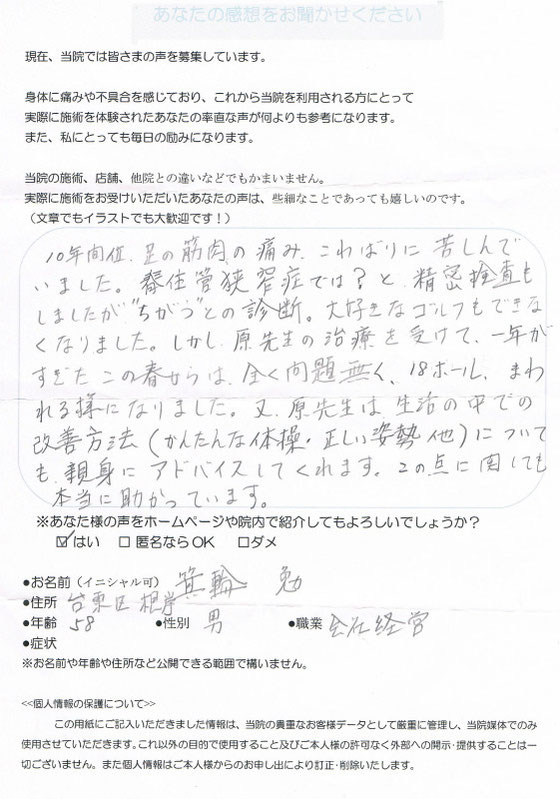 あなたの感想をお聞かせください
現在、当院では皆さまの声を募集しています。
身体に痛みや不具合を感じており、これから当院を利用される方にとって
実際に施術を体験されたあなたの率直な声が何よりも参考になります。
また、私にとっても毎日の励みになります。
当院の施術、店舗、他院との違いなどでもかまいません。
実際に施術をお受けいただいたあなたの声は、些細なことであっても嬉しいのです。
（文章でもイラストでも大歓迎です！）
10年間位、足の筋肉の痛み、こわばりに苦しんで
いました。脊柱管狭窄症では？と、精密検査も
しましたが"ちがう"との診断。大好きなゴルフもできな
くなりました。しかし、原先生の治療を受けて、一年が
すぎたこの春からは、全く問題無く、18ホール、まわ
れる様になりました。又、原先生は、生活の中での
改善方法（かんたんな体操・正しい姿勢他）について
も、親身にアドバイスしてくれます。この点に関しても
本当に助かっています。
※あなた様の声をホームページや院内で紹介してもよろしいでしょうか？
☑はい　□ 匿名なら OK　□ダメ
●お名前（イニシャル可） 箕輪 勉
●住所 台東区根岸
●年齢 58　●性別 男　●職業 会社経営
●症状
※お名前や年齢や住所など公開できる範囲で構いません。
<<個人情報の保護について>>
この用紙にご記入いただきました情報は、当院の貴重なお客様データとして厳重に管理し、当院媒体でのみ
使用させていただきます。これ以外の目的で使用すること及びご本人様の許可なく外部への開示・提供することは一
切ございません。また個人情報はご本人様からのお申し出により訂正・削除いたします。